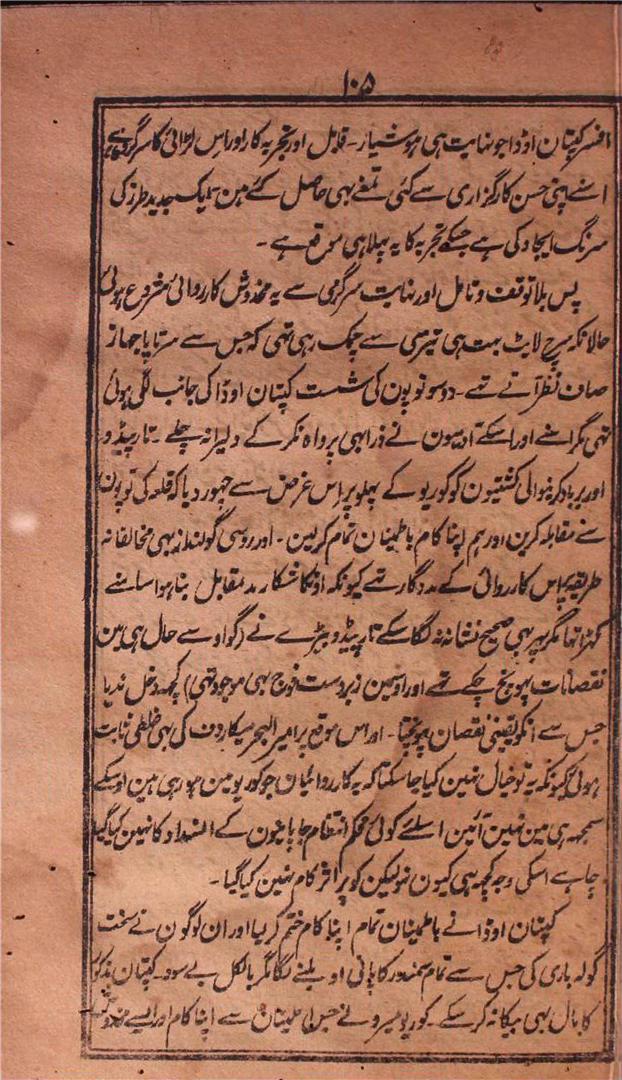 ۱۰۵
افسر کپتان اوڈا جو نہایت ہی ہوشیار۔ قابل اور تجربہ کار اور اس لڑائی کا سرگروہ ہے
اسنے اپنی حسن کارگزاری سے کئی تمغے بہی حاصل کئے ہین ایک جدید طرز کی
سرنگ ایجاد کی ہے جسکے تجربہ کا یہ پہلا ہی موقع ہے۔
پس بلا توقف و تامل اور نہایت سرگرمی سے یہ مخدوش کارروائی شروع ہوئی
حالانکہ سرچ لایٹ بہت ہی تیزی سے چمک رہی تہی کہ جس سے سرتاپا جہاز
صاف نظر آتے تہے۔ دو سو توپون کی شست کپتان اوڈا کی جانب لگی ہوئی
تہی مگر اسنے اور اسکے آدمیون نے ذرا بہی پرواہ نکر کے دلیرانہ چلے۔ تارپیڈو
اور برباد کرنیوالی کشتیون کو کوریو کے پہلو پر اس غرض سے چہوڑ دیا کہ قلعہ کی توپون
سے مقابلہ کرین اور ہم اپنا کام باطمینان تمام کرلین۔ اور روسی گولنداز بہی مخالفانہ
طریقہ پر اس کارروائی کے مددگار تہے کیونکہ اونکا شکار مدمقابل بنا ہوا سامنے
کہڑا تہا مگر پہر بہی صحیح نشانہ نہ لگا سکے تارپیڈو بیڑے نے (گو اوسے حال ہی مین
نقصانات پہونچ چکے تہے اور اوسمین زبردست فوج بہی موجود تہی) کچہہ دخل ندیا
جس سے انکو یقینی نقصان پہونچتا۔ اور اس موقع پر امیر البحر میکاروف کی بہی غلطی ثابت
ہوئی کیونکہ یہ تو خیال نہین کیا جا سکتا کہ یہ کارروائیان جو کوریو مین ہو رہی ہین اوسکے
سمجہہ ہی مین نہین آئین اسلئے کوئی محکم انتظام جاپانیون کے انسداد کا نہین کیا گیا
چاہے اسکی وجہ کچہہ ہی کیون نہو لیکن کوئی پر اثر کام نہین کیا گیا۔
کپتان اوڈا نے باطمینان تمام اپنا کام ختم کر لیا اور ان لوگون نے سخت
گولہ باری کی جس سے تمام سمندر کا پانی اوبلنے لگا مگر بالکل بے سود۔ کپتان مذکور
کا بال بہی بیکا نہ کر سکے۔ کوریو میرو نے جس اطمینان سے اپنا کام اور ایسے